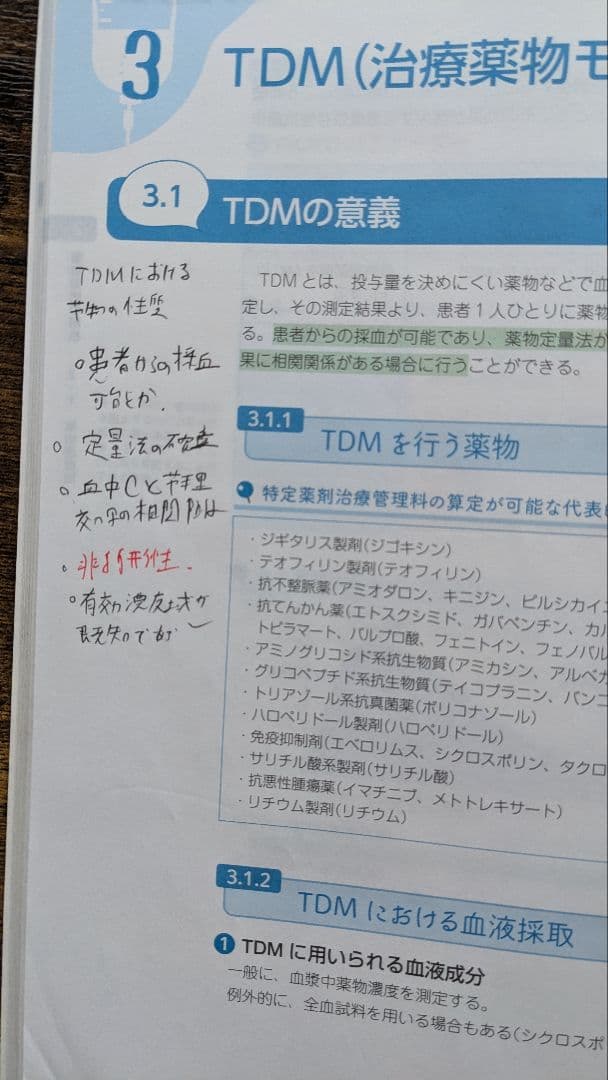 3
TDM(治療薬物モ
3.1
TDMの意義
TDMにおける
薬物の性質
○患者からの採血
可能か.
○ 定量法の確立
○ 血中Cと薬理
効果の相関関係
○
○有効濃度域が
既知であ
TDMとは、投与量を決めにくい薬物などで血
定し、その測定結果より、患者1人ひとりに薬物
る。患者からの採血が可能であり、薬物定量法が
果に相関関係がある場合に行うことができる。
3.1.1
TDMを行う薬物
特定薬剤治療管理料の算定が可能な代表
・ジギタリス製剤(ジゴキシン)
・テオフィリン製剤(テオフィリン)
・抗不整脈薬(アミオダロン、キニジン、ピルシカイ
・抗てんかん薬(エトスクシミド、ガバペンチン、カル
トピラマート、バルプロ酸、フェニトイン、フェノバル
・アミノグリコシド系抗生物質(アミカシン、アルベカ
・グリコペプチド系抗生物質(テイコプラニン、バンコ
・トリアゾール系抗真菌薬(ボリコナゾール)
・ハロペリドール製剤(ハロペリドール)
・免疫抑制剤(エベロリムス、シクロスポリン、タクロ
・サリチル酸系製剤(サリチル酸)
・抗悪性腫瘍薬(イマチニブ、メトトレキサート)
・リチウム製剤(リチウム)
3.1.2
TDMにおける血液採取
1 TDMに用いられる血液成分
一般に、血漿中薬物濃度を測定する。
例外的に、全血試料を用いる場合もある(シクロスポ